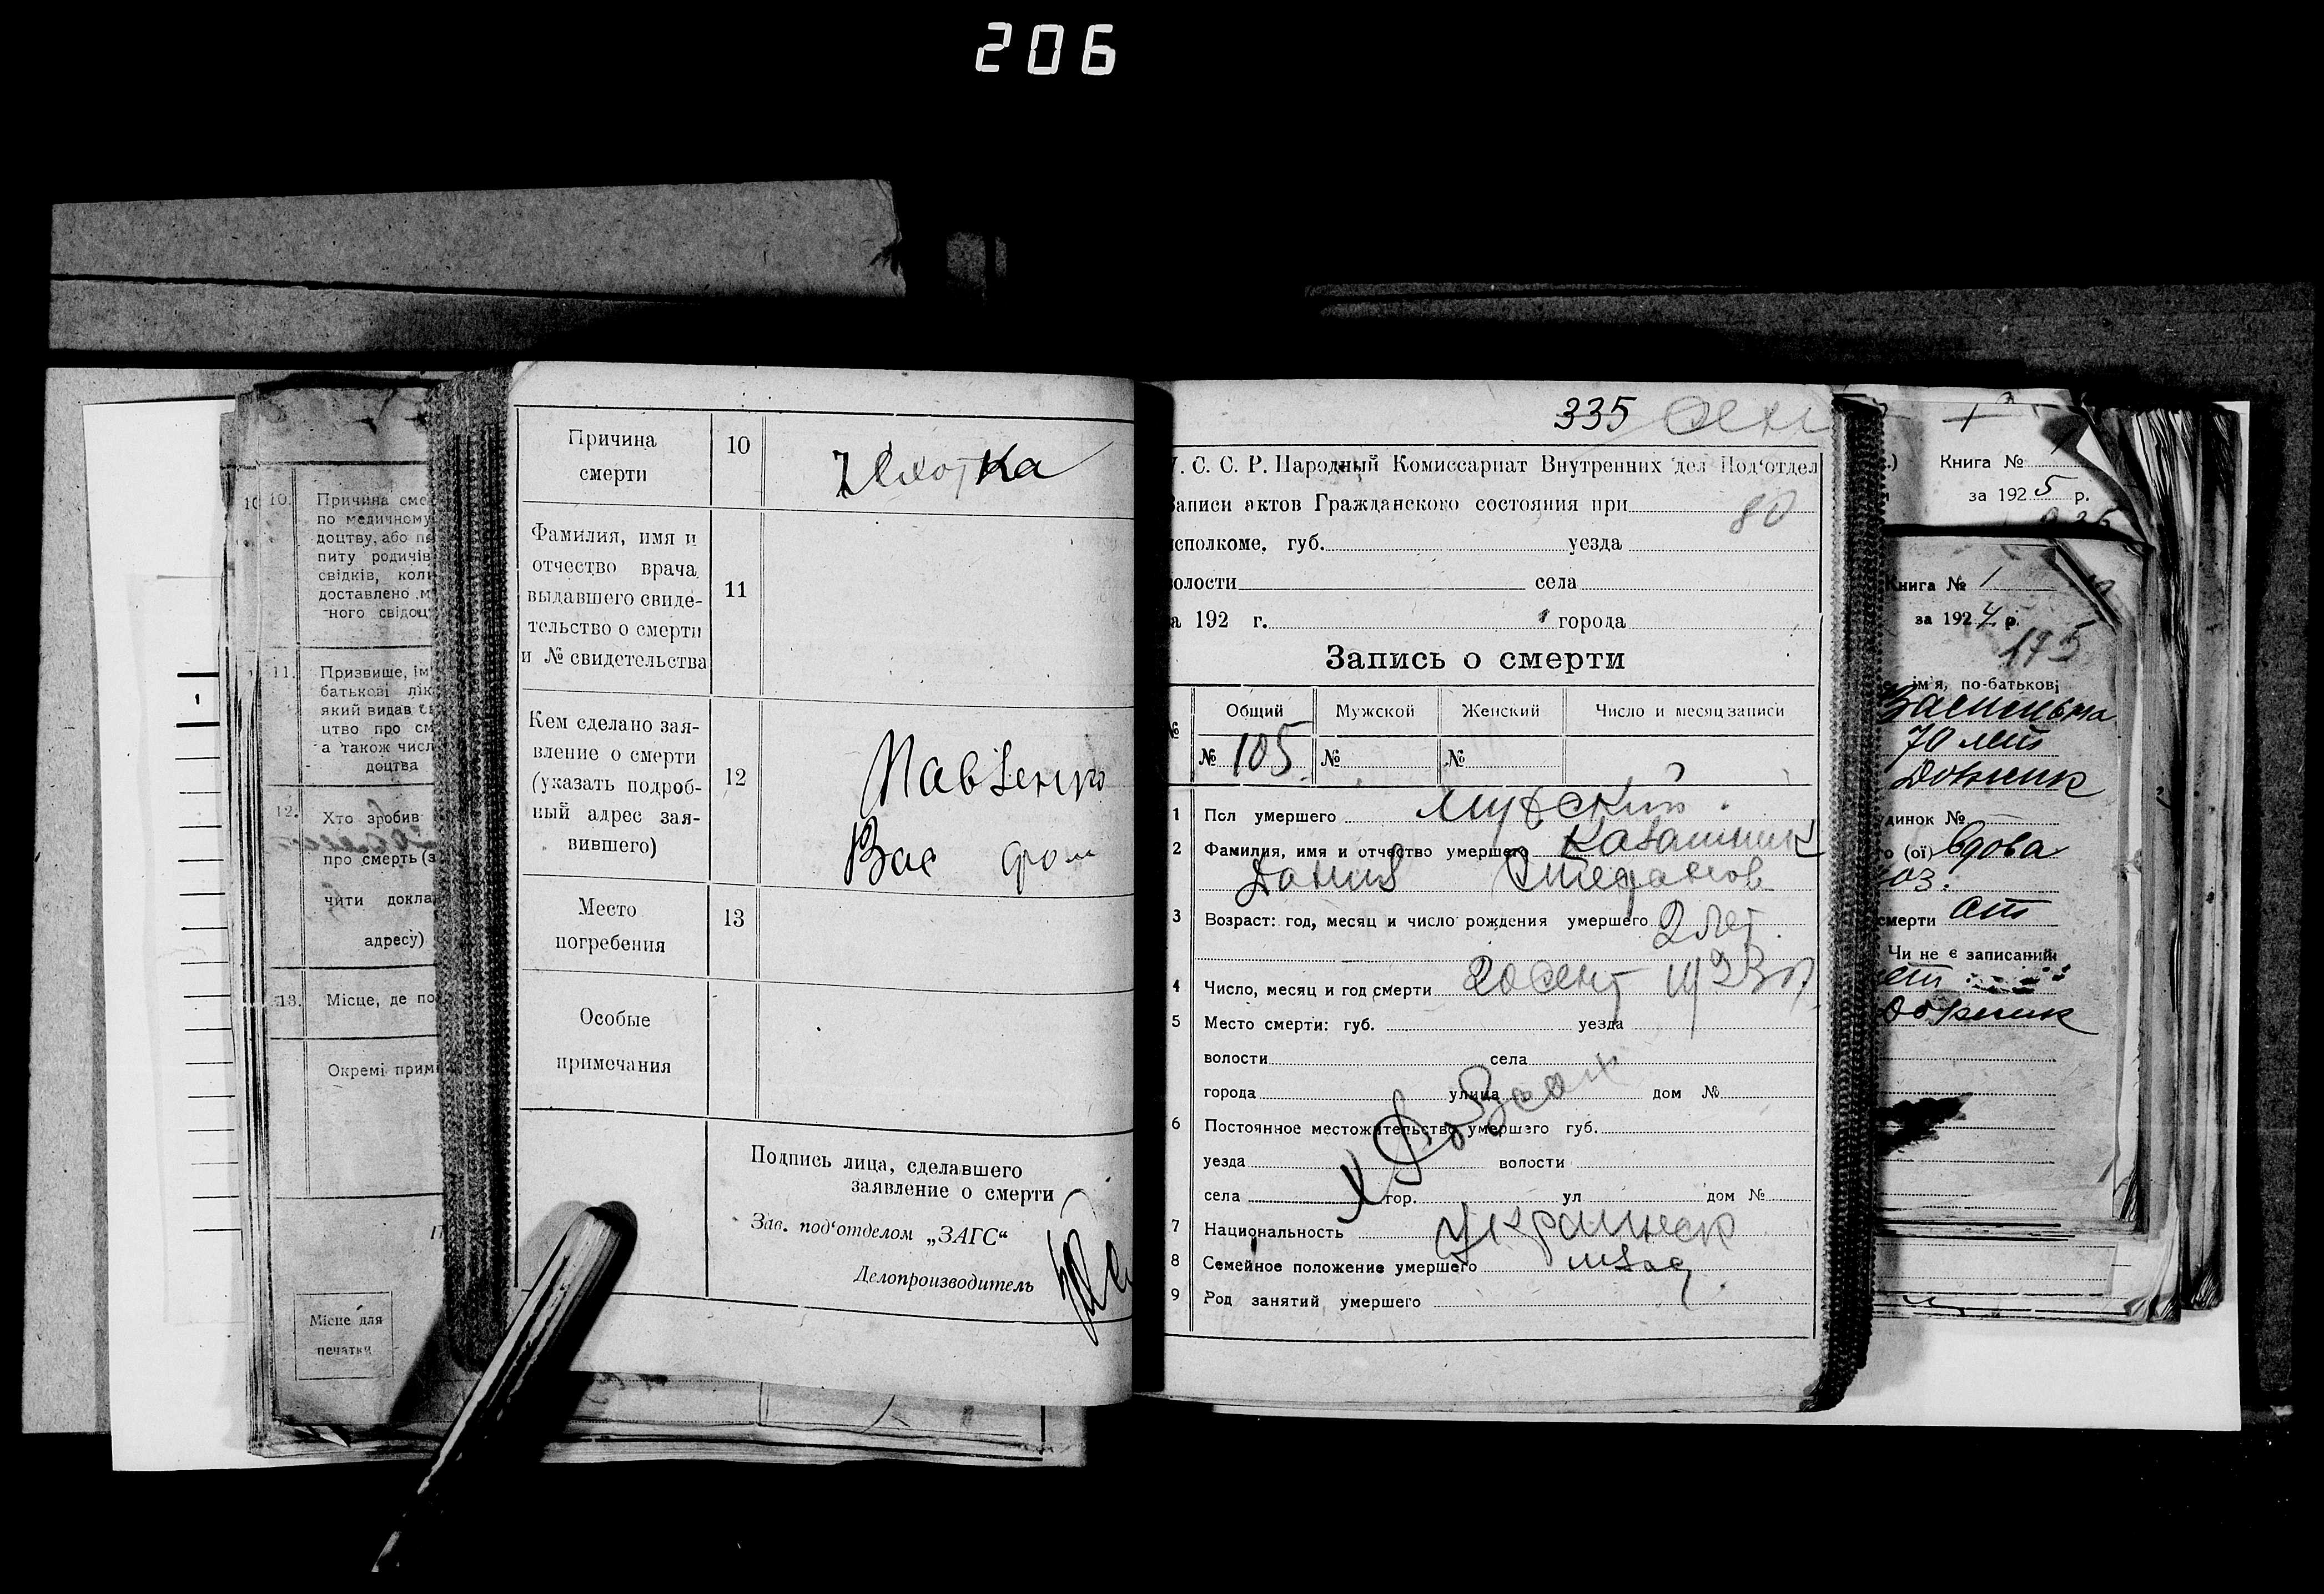 206
10.
Причина сме
по медичному
доцтву, або п
питу родичів
свідків, коли
доставлено м
ного свідоц
11.
Призвище, ім
батькові лік
який видав с
цтво про см
а також числ
доцтва
12.
Хто зробив
про смерть (з
чити докла
адресу)
13.
Місце, де по
Окремі прим
Місце для
печатки
1
Причина
смерти
10
Чехотка
Фамилия, имя и
отчество врача
выдавшего свиде-
тельство о смерти
и № свидетельства
11
Кем сделано зая-
вление о смерти
(указать подроб-
ный адрес зая-
вившего)
12
Павленко
Вас
Место
погребения
13
Особые
примечания
Подпись лица, сделавшего
заявление о смерти
Зав. под'отделом „ЗАГС“
Делопроизводитель
335
У. С. С. Р. Народный Комиссариат Внутренних дел Под'отдел
Записи актов Гражданского состояния при
80
исполкоме, губ. уезда
волости села
а 192 г. города
Запись о смерти
№ Общий Мужской Женский Число и месяц записи
№ 105 № №
1 Пол умершего мужской
2 Фамилия, имя и отчество умершего Калашник
Данил Стефанов
3 Возраст: год, месяц и число рождения умершего 2 лет
4 Число, месяц и год смерти 20 сент 1923 г
5 Место смерти: губ. уезда
волости села
города улица дом №
6 Постоянное местожительство умершего губ.
уезда волости
села гор. ул дом №
7 Национальность украинец
8 Семейное положение умершего млад
9 Род занятий умершего
Книга № 1
за 1925 р.
Книга № 1
за 1924 р.
175
ім'я, по-батькові
70 лет
удинок №
о (ої) вдова
смерти
Чи не є записаний